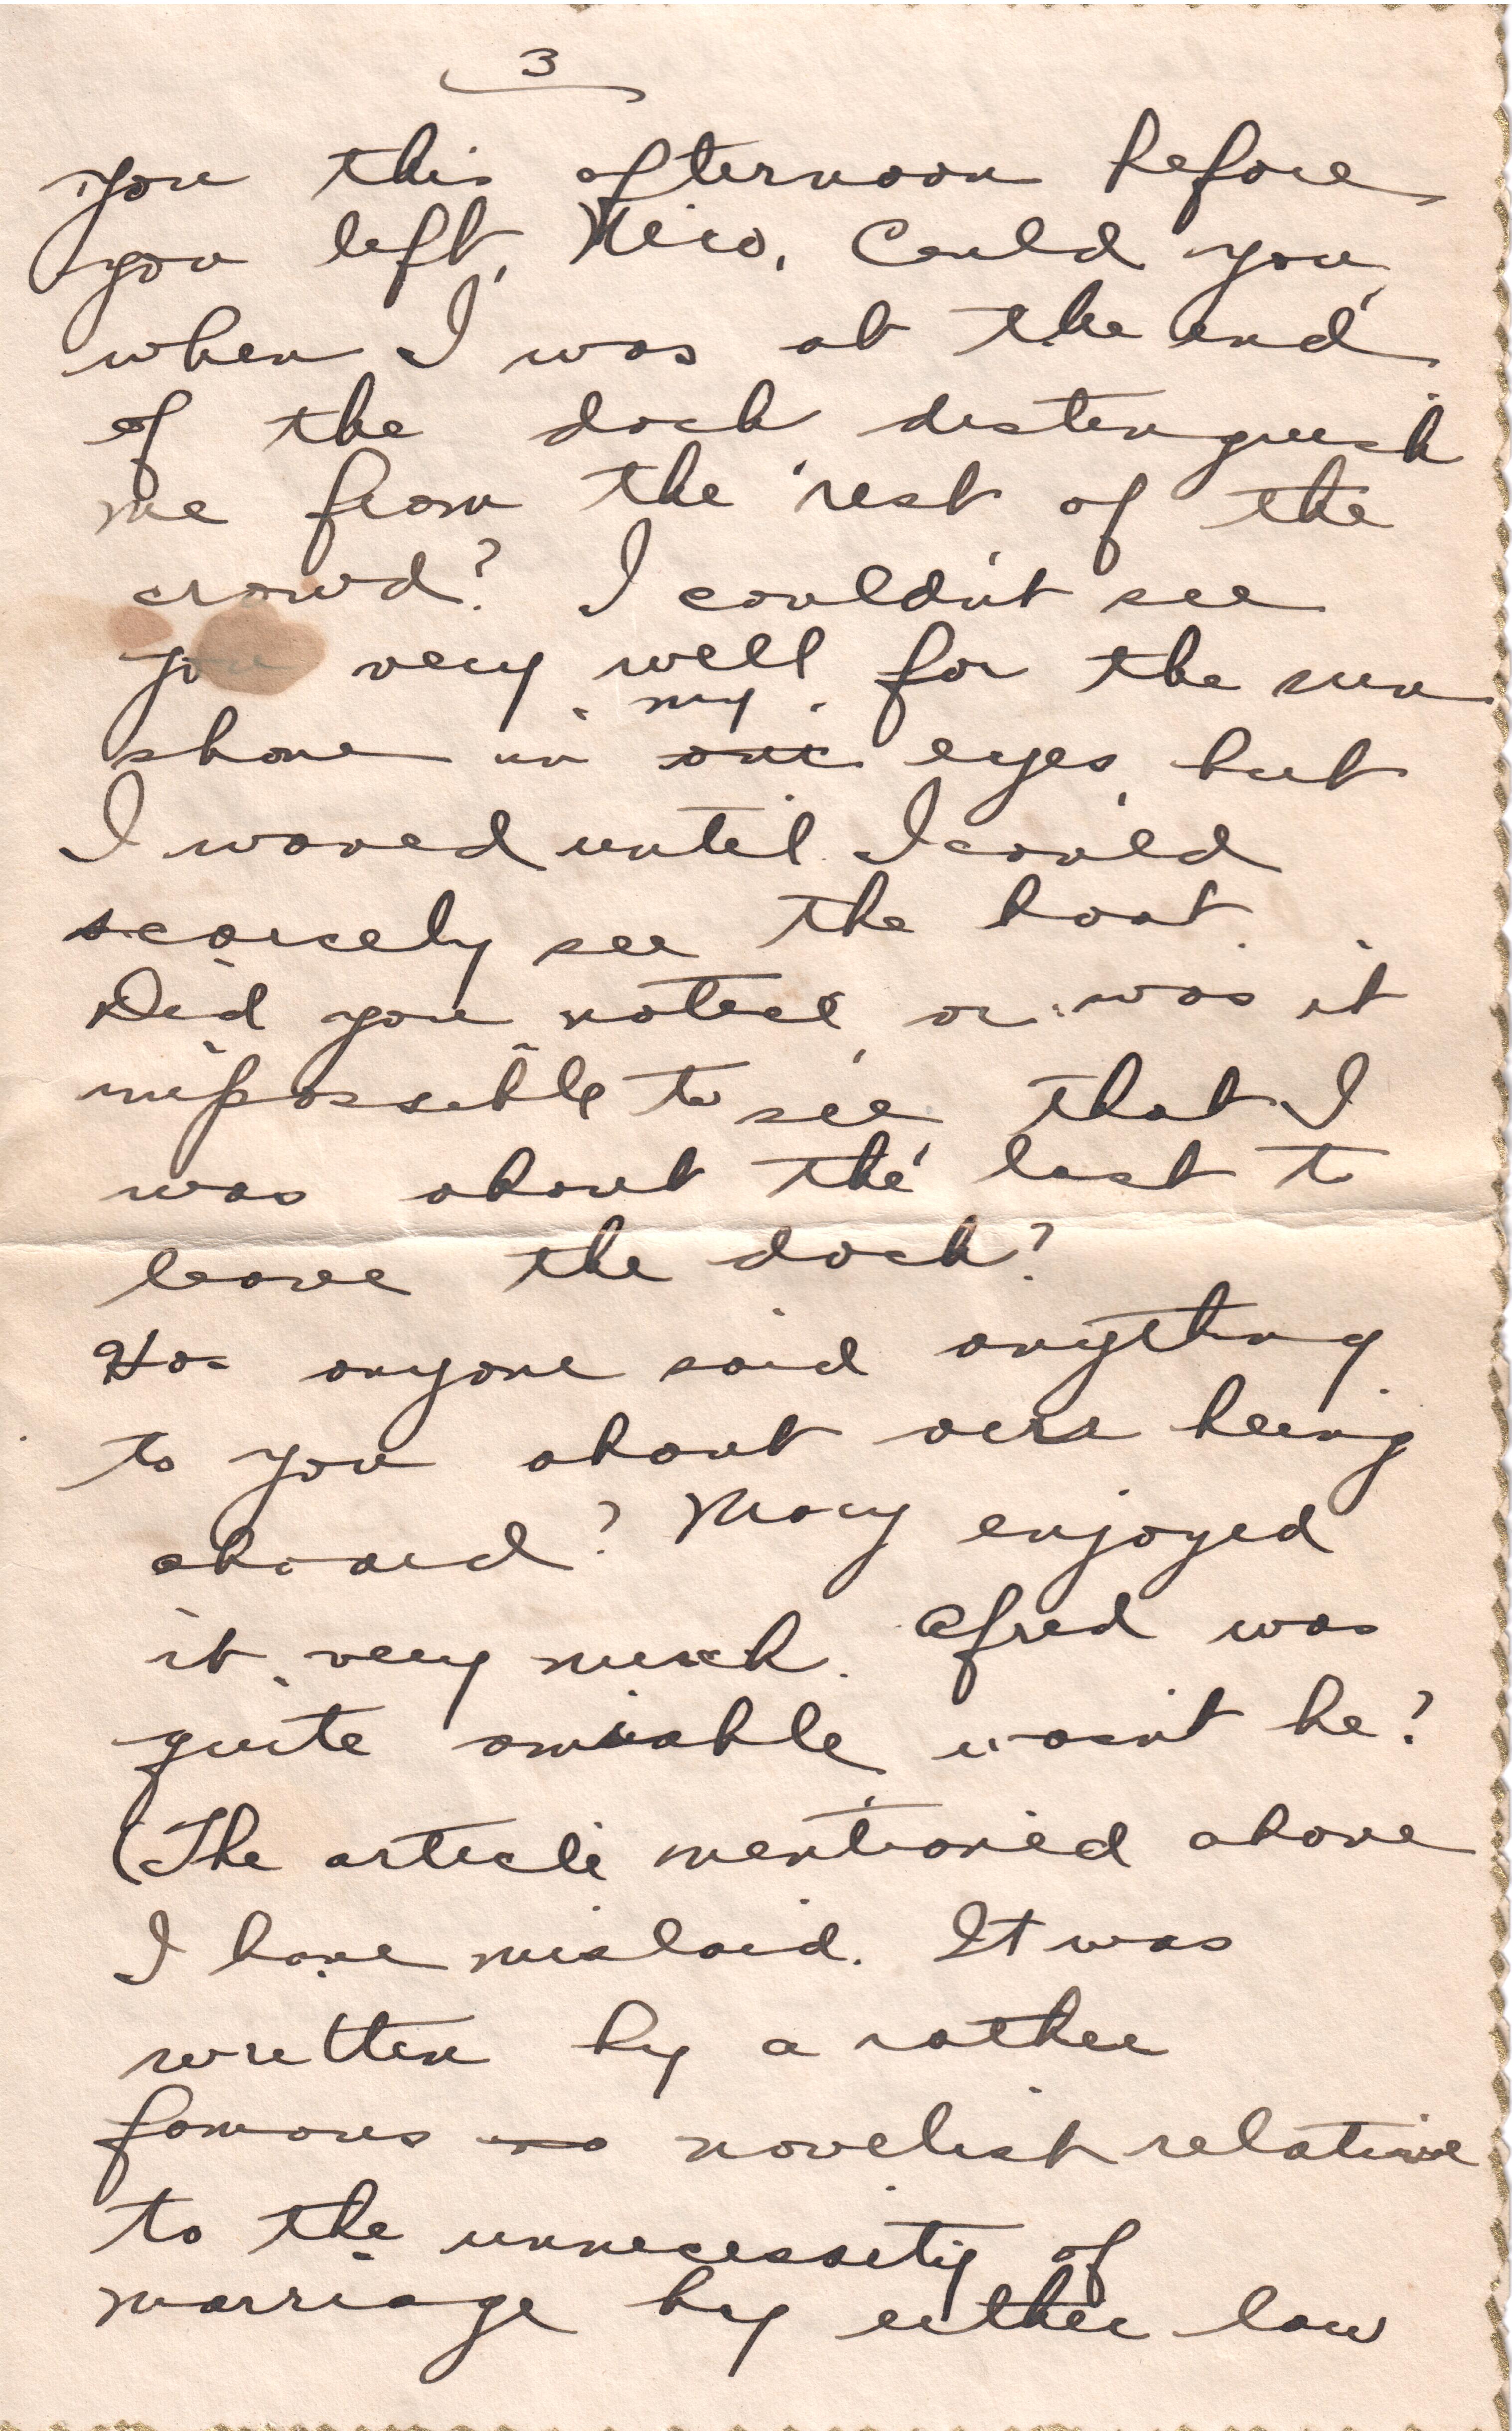 3
you this afternoon before
you left, Nico. Could you,
when I was at the end
of the dock distinguish
me from the rest of the
crowd? I couldn't see
you very well for the sun
my
shone in our eyes, but
I waved until I could
scarcely see the boat.
Did you notice, or was it
impossible to see, that I
was about the last to
leave the dock?
Has anyone said anything
to you about our being
aboard? Mary enjoyed
it very much. Afred was
quite amiable, wasn't he?
(The article mentioned above
I have mislaid. It was
written by a rather
famous novelist relative
to the unnecessity of
marriage by either law